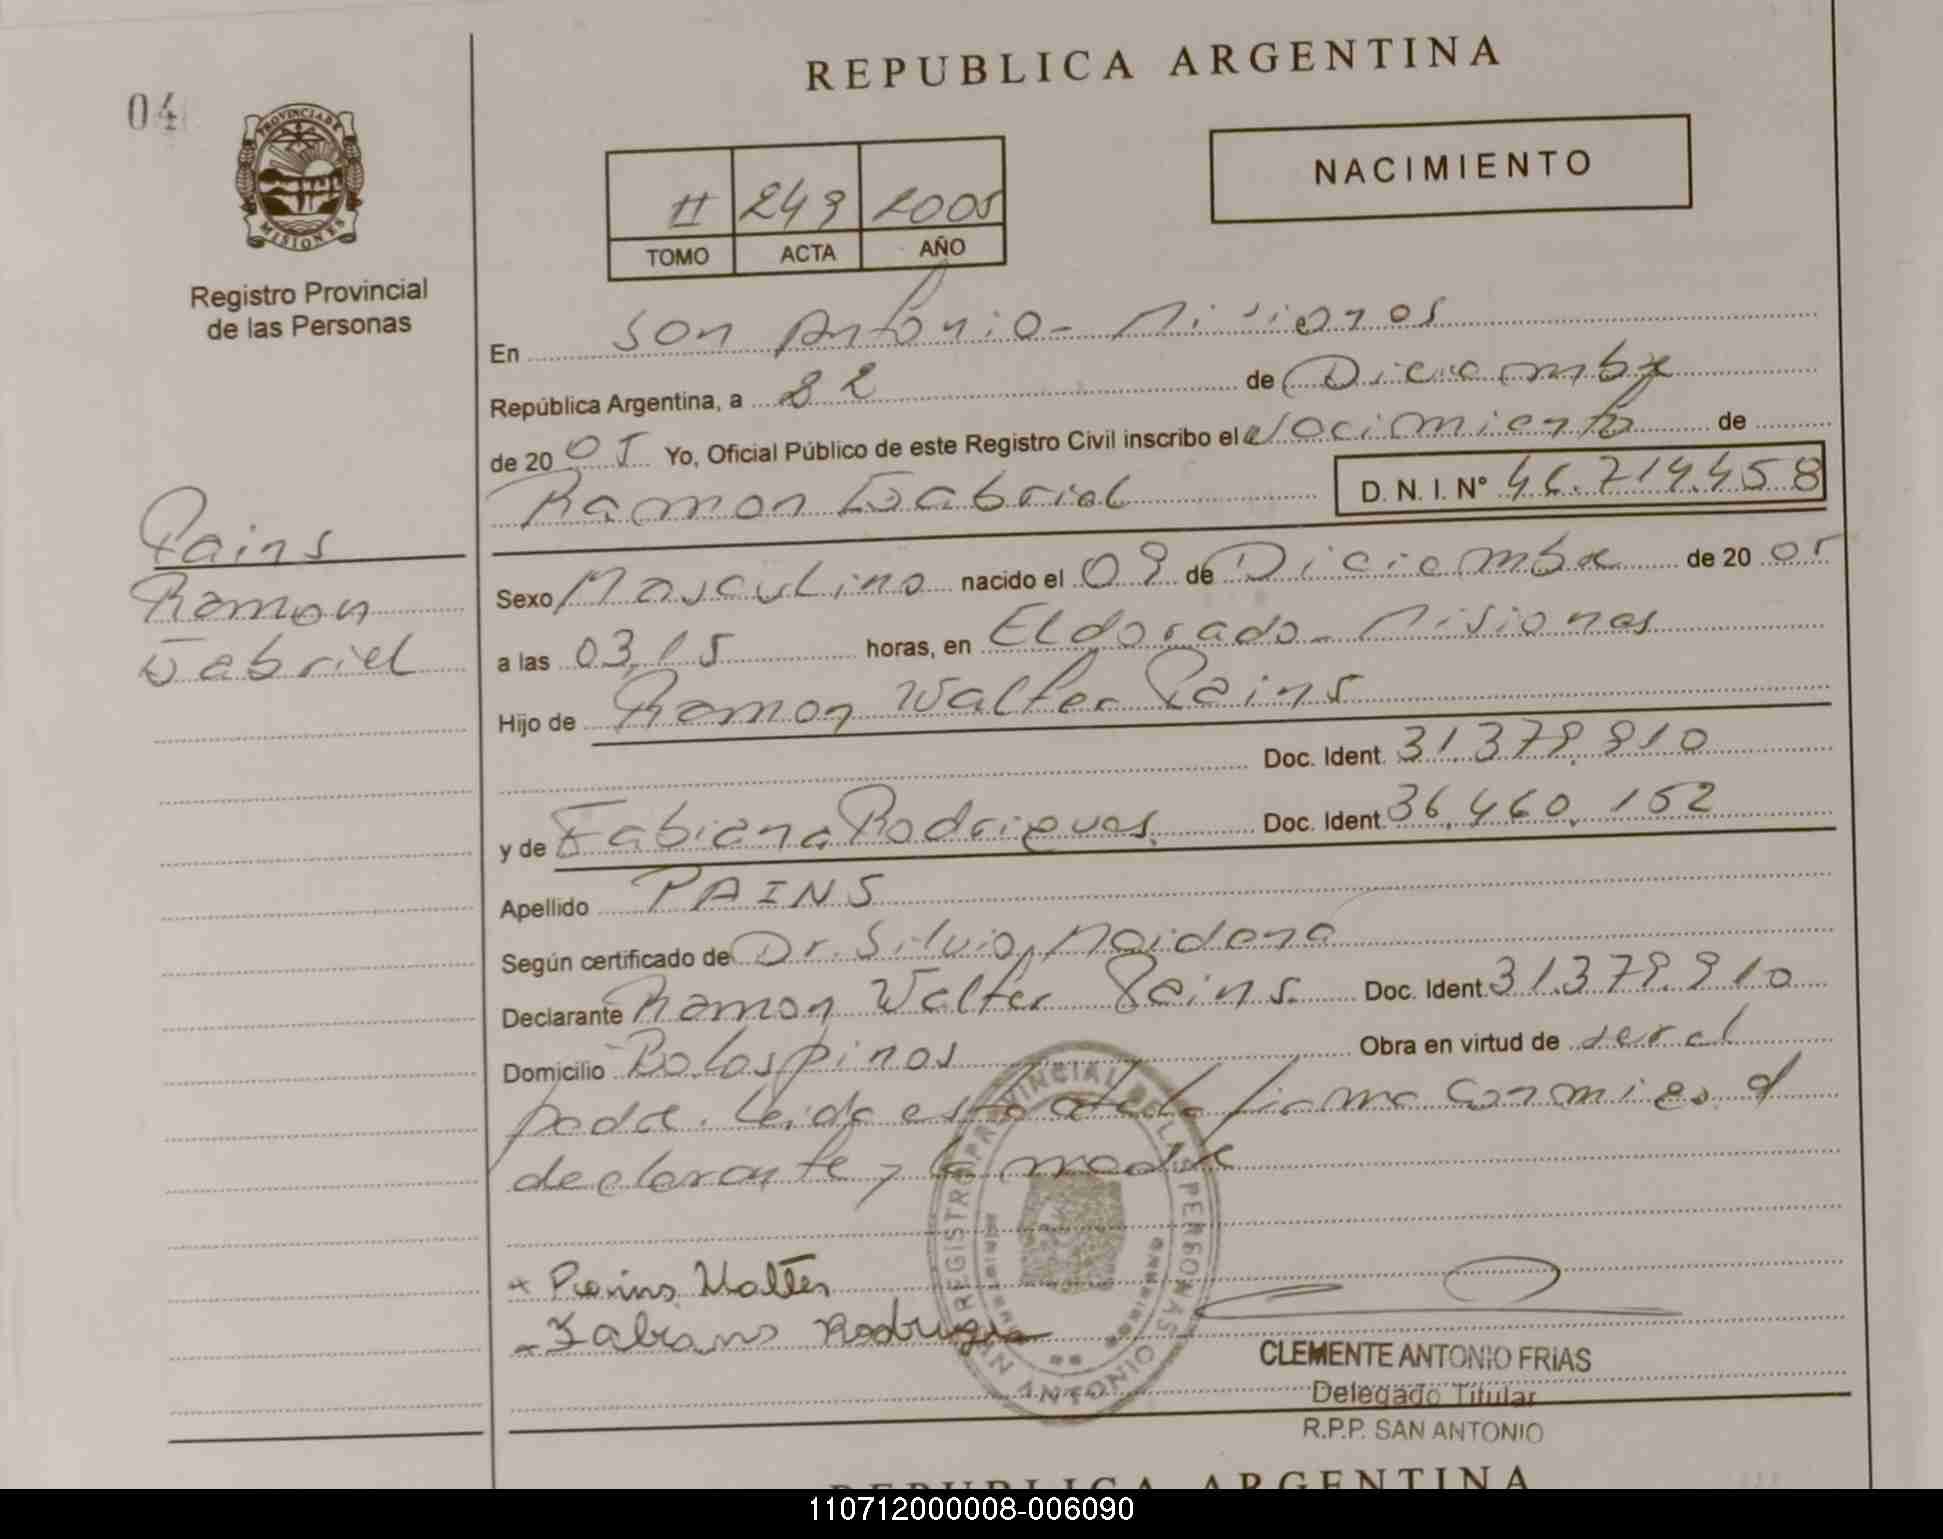 REPUBLICA ARGENTINA
04
PROVINCIA DE MISIONES
Registro Provincial
de las Personas
NACIMIENTO
II 249 2005
TOMO ACTA AÑO
En San Antonio - Misiones
República Argentina, a 22 de Diciembre
de 20 05 Yo, Oficial Público de este Registro Civil inscribo el Nacimiento de
Ramon Gabriel D. N. I. N° 46.714.458
Pains
Ramon
Gabriel
Sexo Masculino nacido el 09 de Diciembre de 20 05
a las 03,15 horas, en Eldorado - Misiones
Hijo de Ramon Walter Pains
Doc. Ident. 31.379.910
y de Fabiana Rodrigues Doc. Ident. 36.460.152
Apellido PAINS
Según certificado de Dr. Silvio Maidana
Declarante Ramon Walter Pains Doc. Ident. 31.379.910
Domicilio Bo. Los pinos Obra en virtud de ser el
padre. Leida esta acta la firma conmigo el
declarante y la madre
Pains Walter
Fabiana Rodrigues
REGISTRO PROVINCIAL DE LAS PERSONAS
SAN ANTONIO
CLEMENTE ANTONIO FRIAS
Delegado Titular
R.P.P. SAN ANTONIO
REPUBLICA ARGENTINA
110712000008-006090